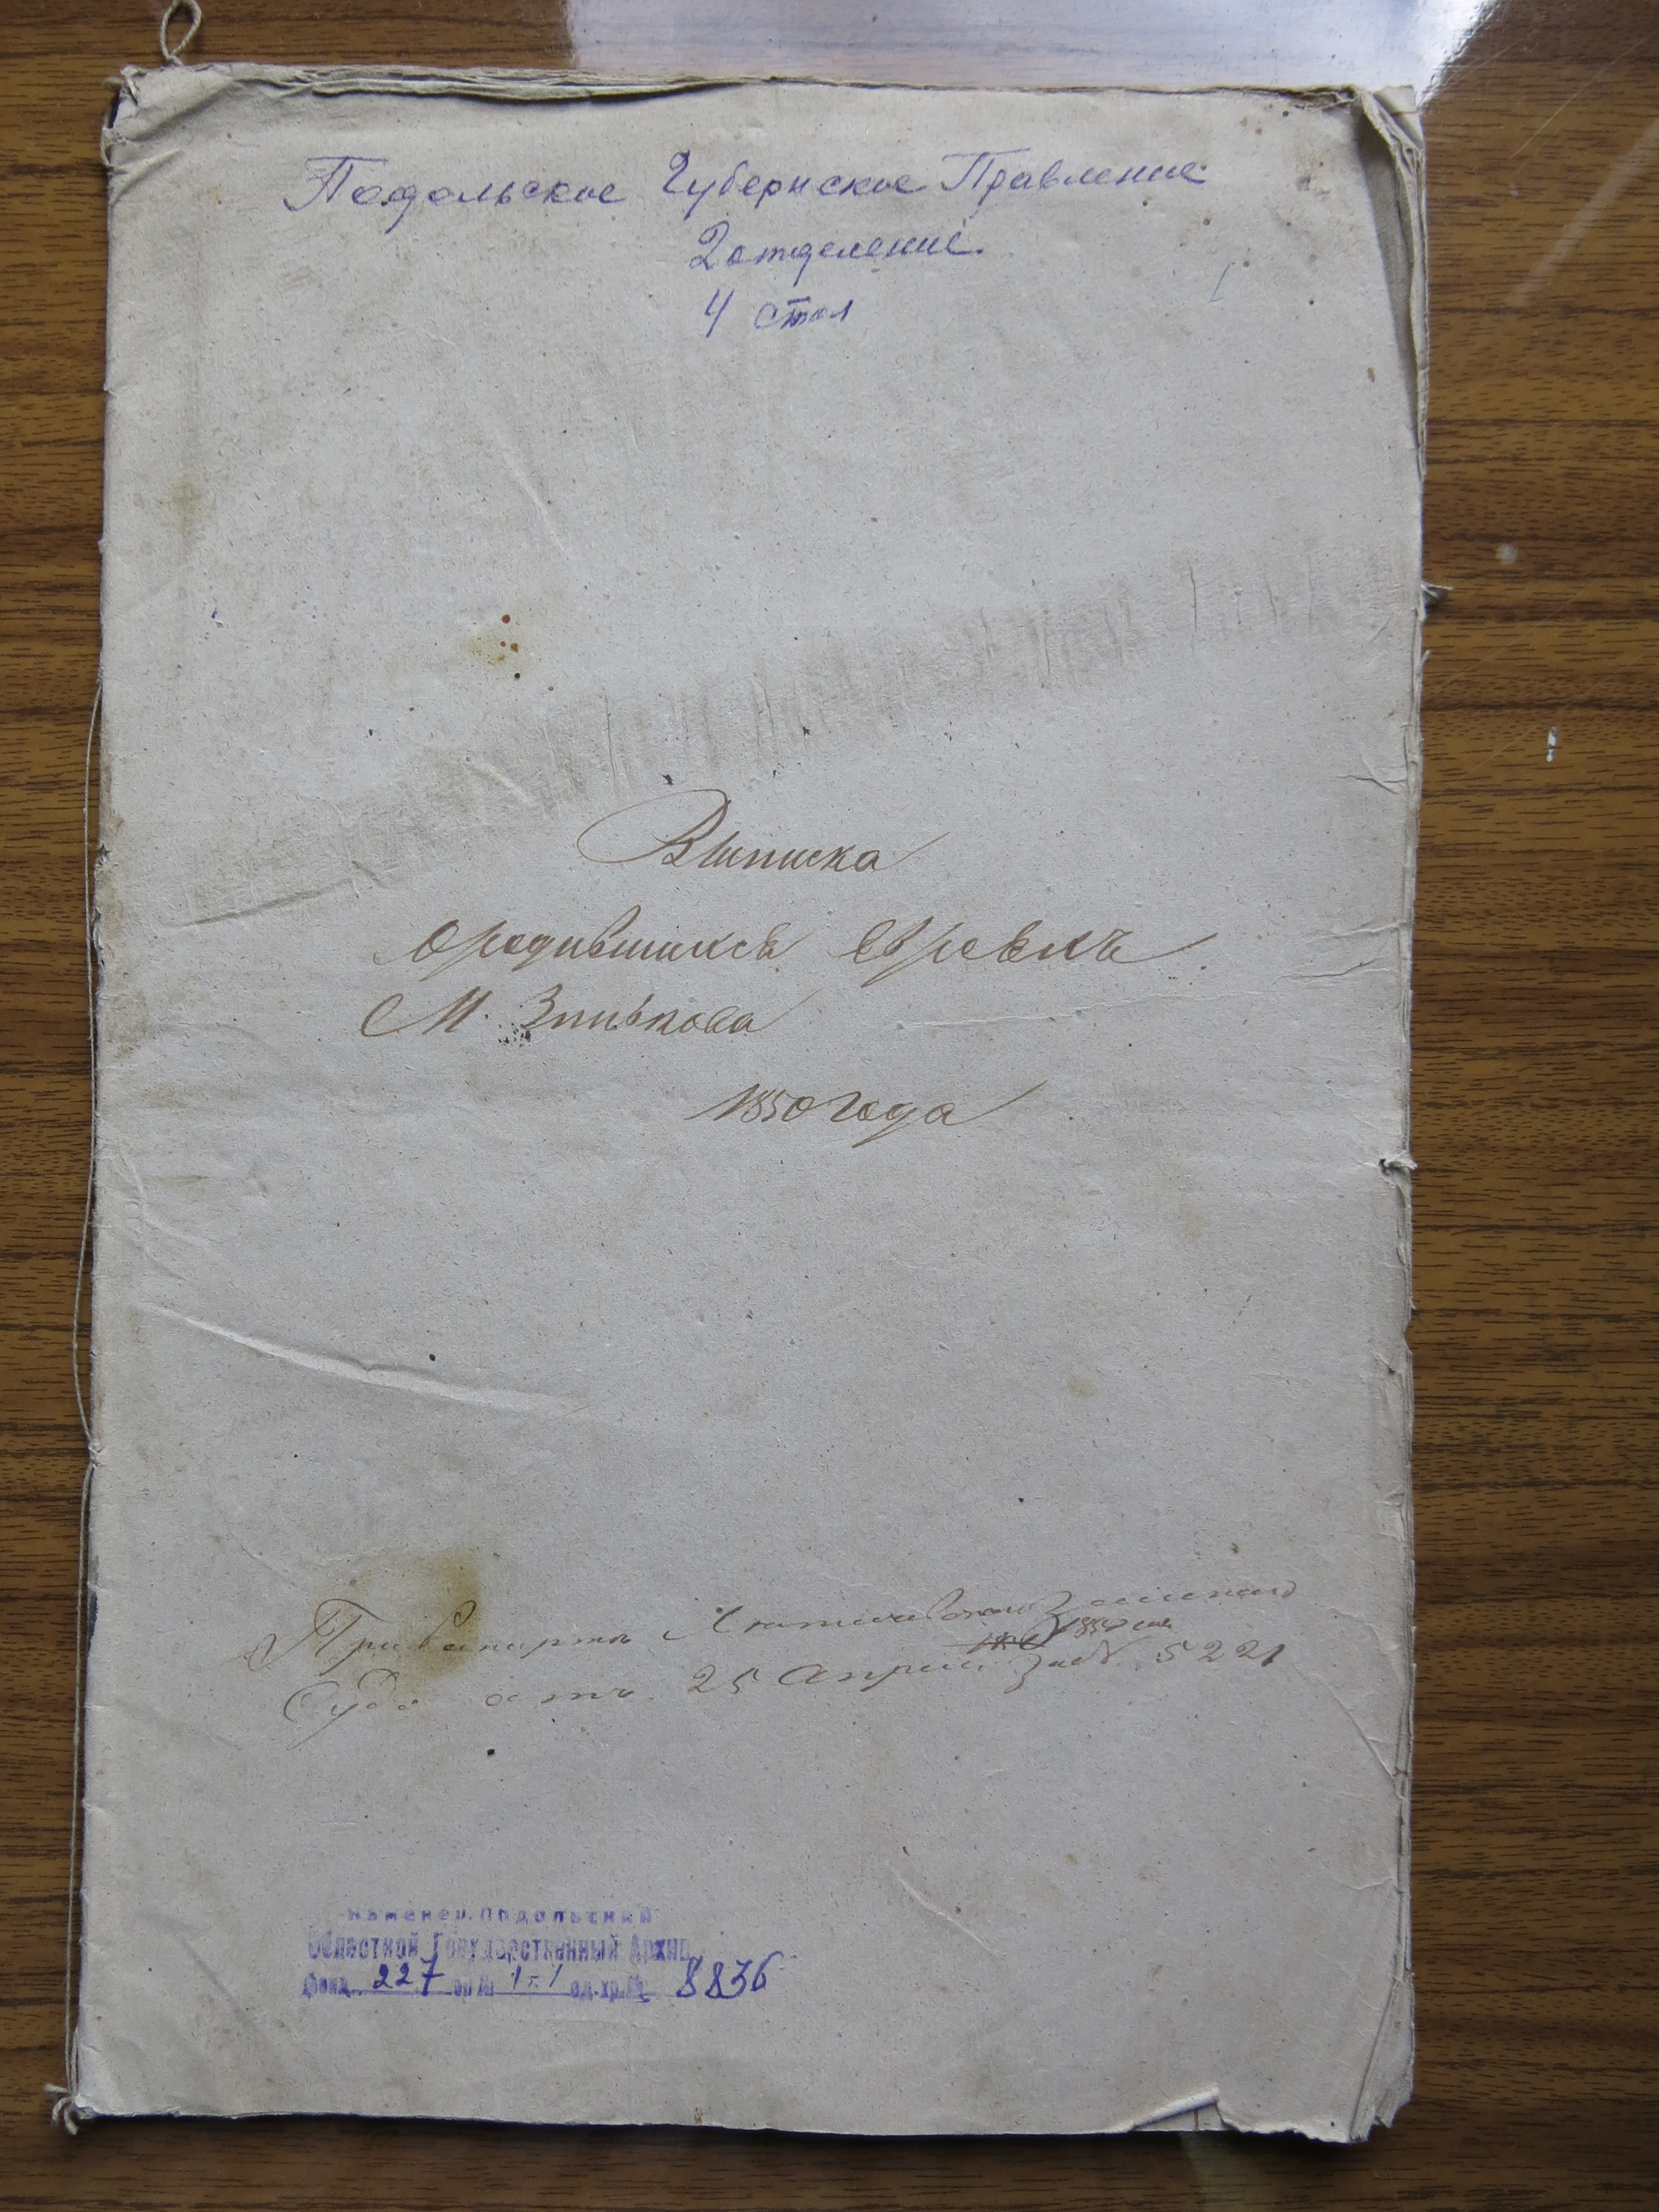 Подольское Губернское Правление
2 отделение.
4 стол
Выписка
о родившихся евреяхъ
М. Зинькова
1850 года
При рапорте Летичевского Земского
1850 года
Суда отъ 25 Апреля за № 5221
Каменец.Подольский
Областной Государственный Архив
фонд 227 оп.№ 1 т. 1 ед.хр.№ 8836